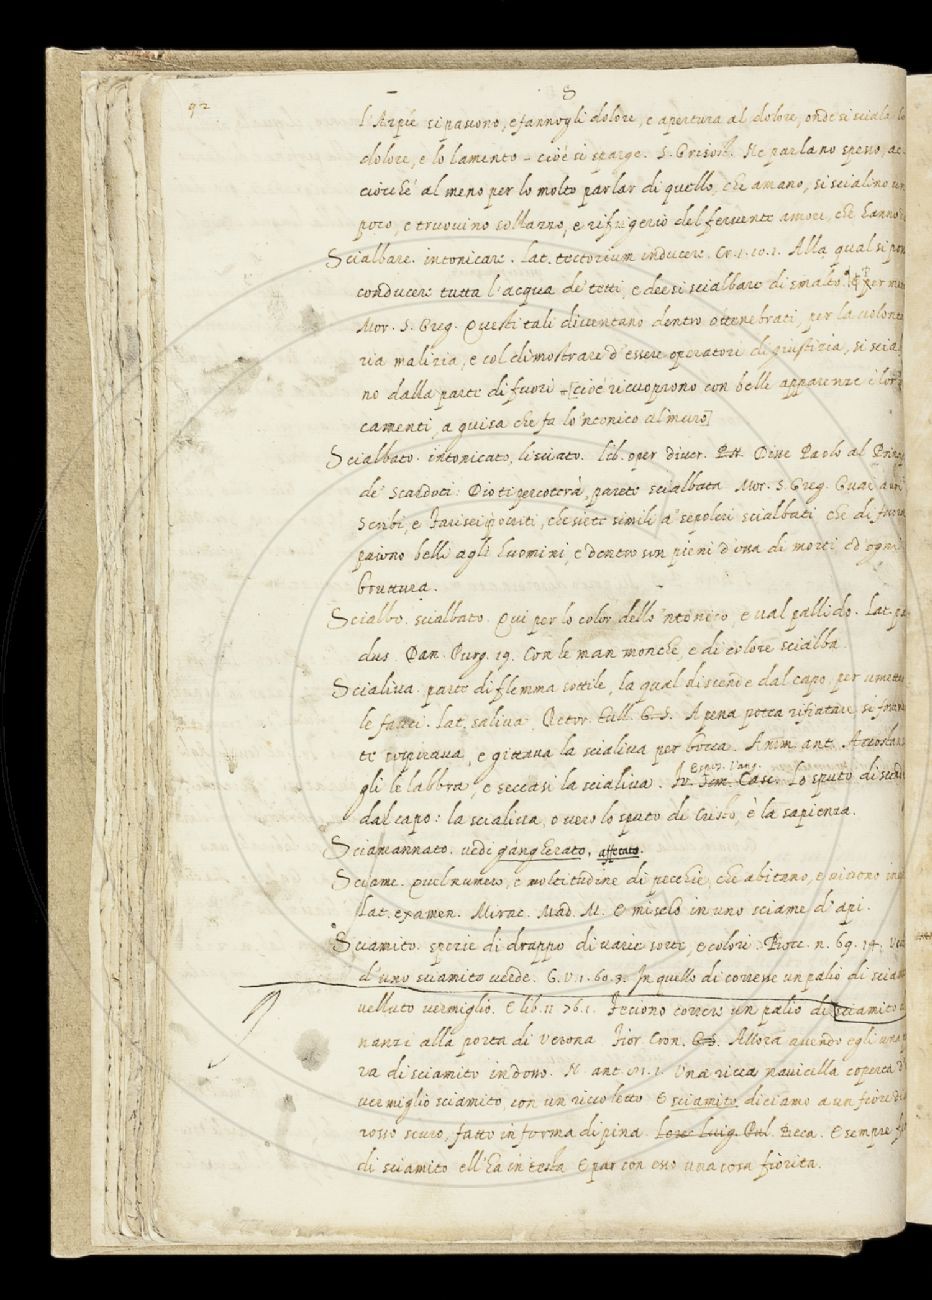 92
S
l'Arpie si pascono, e fannogli dolore, e apertura al dolore, onde si sciala lo
dolore, e lo lamento - cioè si sparge. S. Grisost. Ne parlano spesso, ac-
ciocchè al meno per lo molto parlar di quello, che amano, si scialino un
poco, e truovino sollazzo, e rifrigerio del fervente amore, che hanno
Scialbare. intonicare. Lat. tectoreium inducere. Cr. 1. 10. 1. Alla qual si pon
conducere tutta l'acqua de' tetti, e deesi scialbare di smalto. per
Mor. S. Greg. Questi tali diventano dentro ottenebrati, per la volonta
ria malizia, e col dimostrare d'essere operatori di giustizia, si scial
no dalla parte di fuori [cioè ricuoprono con belle apparenze i lor
camenti, a guisa che fa lo 'ntonico al muro]
Scialbato. intonicato, lisciato. lib. oper diver. Disse Paolo al Princ
de' Sacerdoti: Dio ti percoterà, parete scialbata Mor. S. Greg. Guai a voi
Scribi, e Farisei ipocriti, che siete simili a' sepolcri scialbati che di fuora
paiono belli agli huomini, e dentro son pieni d'ossa di morti, ed ogni
bruttura.
Scialbo. scialbato. Qui per lo color dello 'ntonico, e val pallido. Lat. pa
dus. Dan. Purg. 19. Con le man monche, e di colore scialba.
Scialiva. parte di flemma sottile, la qual discende dal capo, per umetta
le fauci. lat. saliva. Retor. Tull. G. S. A pena potea rifiatare, si
te sospirava, e gittava la scialiva per bocca. Amm. ant. Accostan
Espos. Vang.
gli le labbra, e seccasi la scialiva. Iv. Fem. Casc. Lo sputo discen
dal capo: la scialiva, o vero lo sputo di Cristo, è la sapienza.
Sciamannato. vedi gangherato, affettato.
Sciame. Quel numero, e moltitudine di pecchie, che abitano, e vivono in
Lat. examen. Mirac. Mad. M. E mischiò in uno sciame d'api.
Sciamito. spezie di drappo di varie sorte, e colori. Bocc. n. 69. 14.
d'uno sciamito verde. G. V. 1. 60. 3. In quello di correre un palio di scia
velluto vermiglio. E lib. 11 76. 1. Feciono correre un palio di sciamito
nanzi alla porta di Verona. Fior. Cron. G. S. Allora avendo egli una
ra di sciamito indosso. N. ant. Una ricca navicella coperta d
vermiglio sciamito, con un ricco letto E sciamito diciamo a un fiore di
rosso scuro, fatto in forma di pina. Luig. Pul. Beca. E sempre
di sciamito ell'ha in testa E par con esso una cosa fiorita.